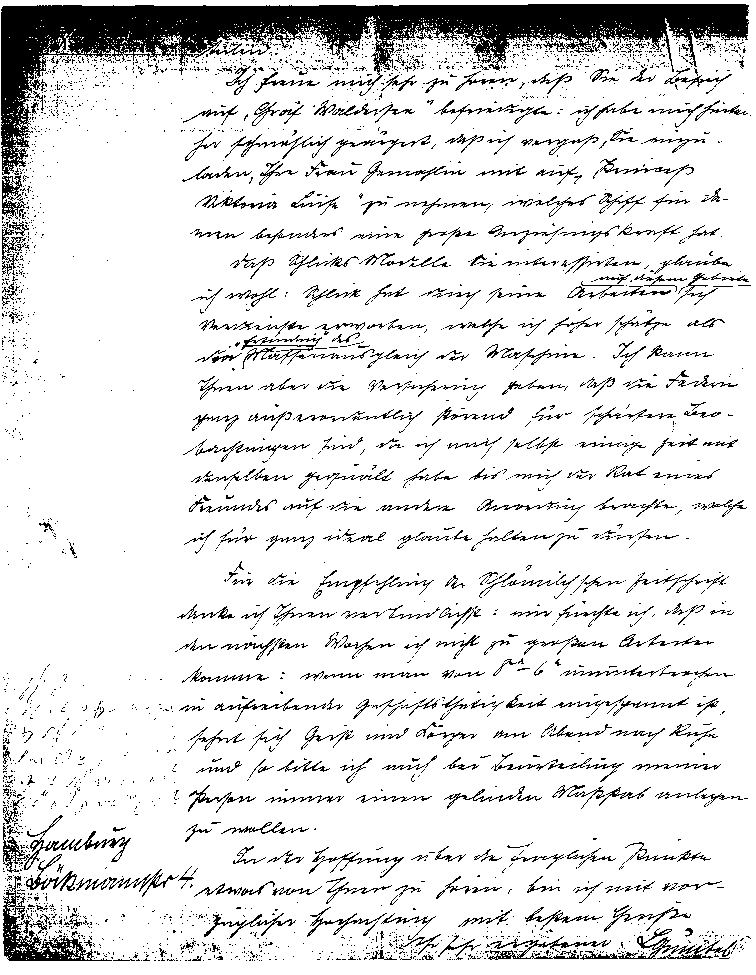 Ich freue mich sehr zu hören, daß Sie der Besuch
auf „Graf Waldersee" befriedigte: ich habe mich hinter-
her schmählich geärgert, daß ich vergaß, Sie einzu-
laden, Ihre Frau Gemahlin mit auf „Prinzeß
Viktoria Luise" zu nehmen, welches Schiff für Da-
men besonders eine große Anziehungskraft hat.
Daß Schlicks Modelle Sie interessierten, glaube
auf diesem Gebiete
ich wohl: Schlick hat durch seine Arbeiten sich
Verdienste erworben, welche ich höher schätze als
Erfindung des
den Massenausgleich der Maschine. Ich kann
Ihnen aber die Versicherung geben, daß die Federn
ganz außerordentlich störend für schärfere Beo-
bachtungen sind, da ich mich selbst einige Zeit mit
denselben gequält habe bis mich der Rat eines
Freundes auf die andere Anordnung brachte, welche
ich für ganz ideal glaube halten zu dürfen.
Für die Empfehlung der Schlömilch'schen Zeitschrift
danke ich Ihnen verbindlichst: nur fürchte ich, daß in
den nächsten Wochen ich nicht zu großen Arbeiten
komme: wenn man von 8 - 6 ununterbrochen
in aufreibender Geschäftsthätigkeit eingespannt ist,
sehnt sich Geist und Körper am Abend nach Ruhe
und so bitte ich auch bei Beurteilung meiner
Person immer einen gelinden Maßstab anlegen
zu wollen.
In der Hoffnung über die fraglichen Punkte
etwas von Ihnen zu hören, bin ich mit vor-
züglicher Hochachtung mit bestem Gruße
Ihr sehr ergebener
Hamburg
Böckmannstr 4.